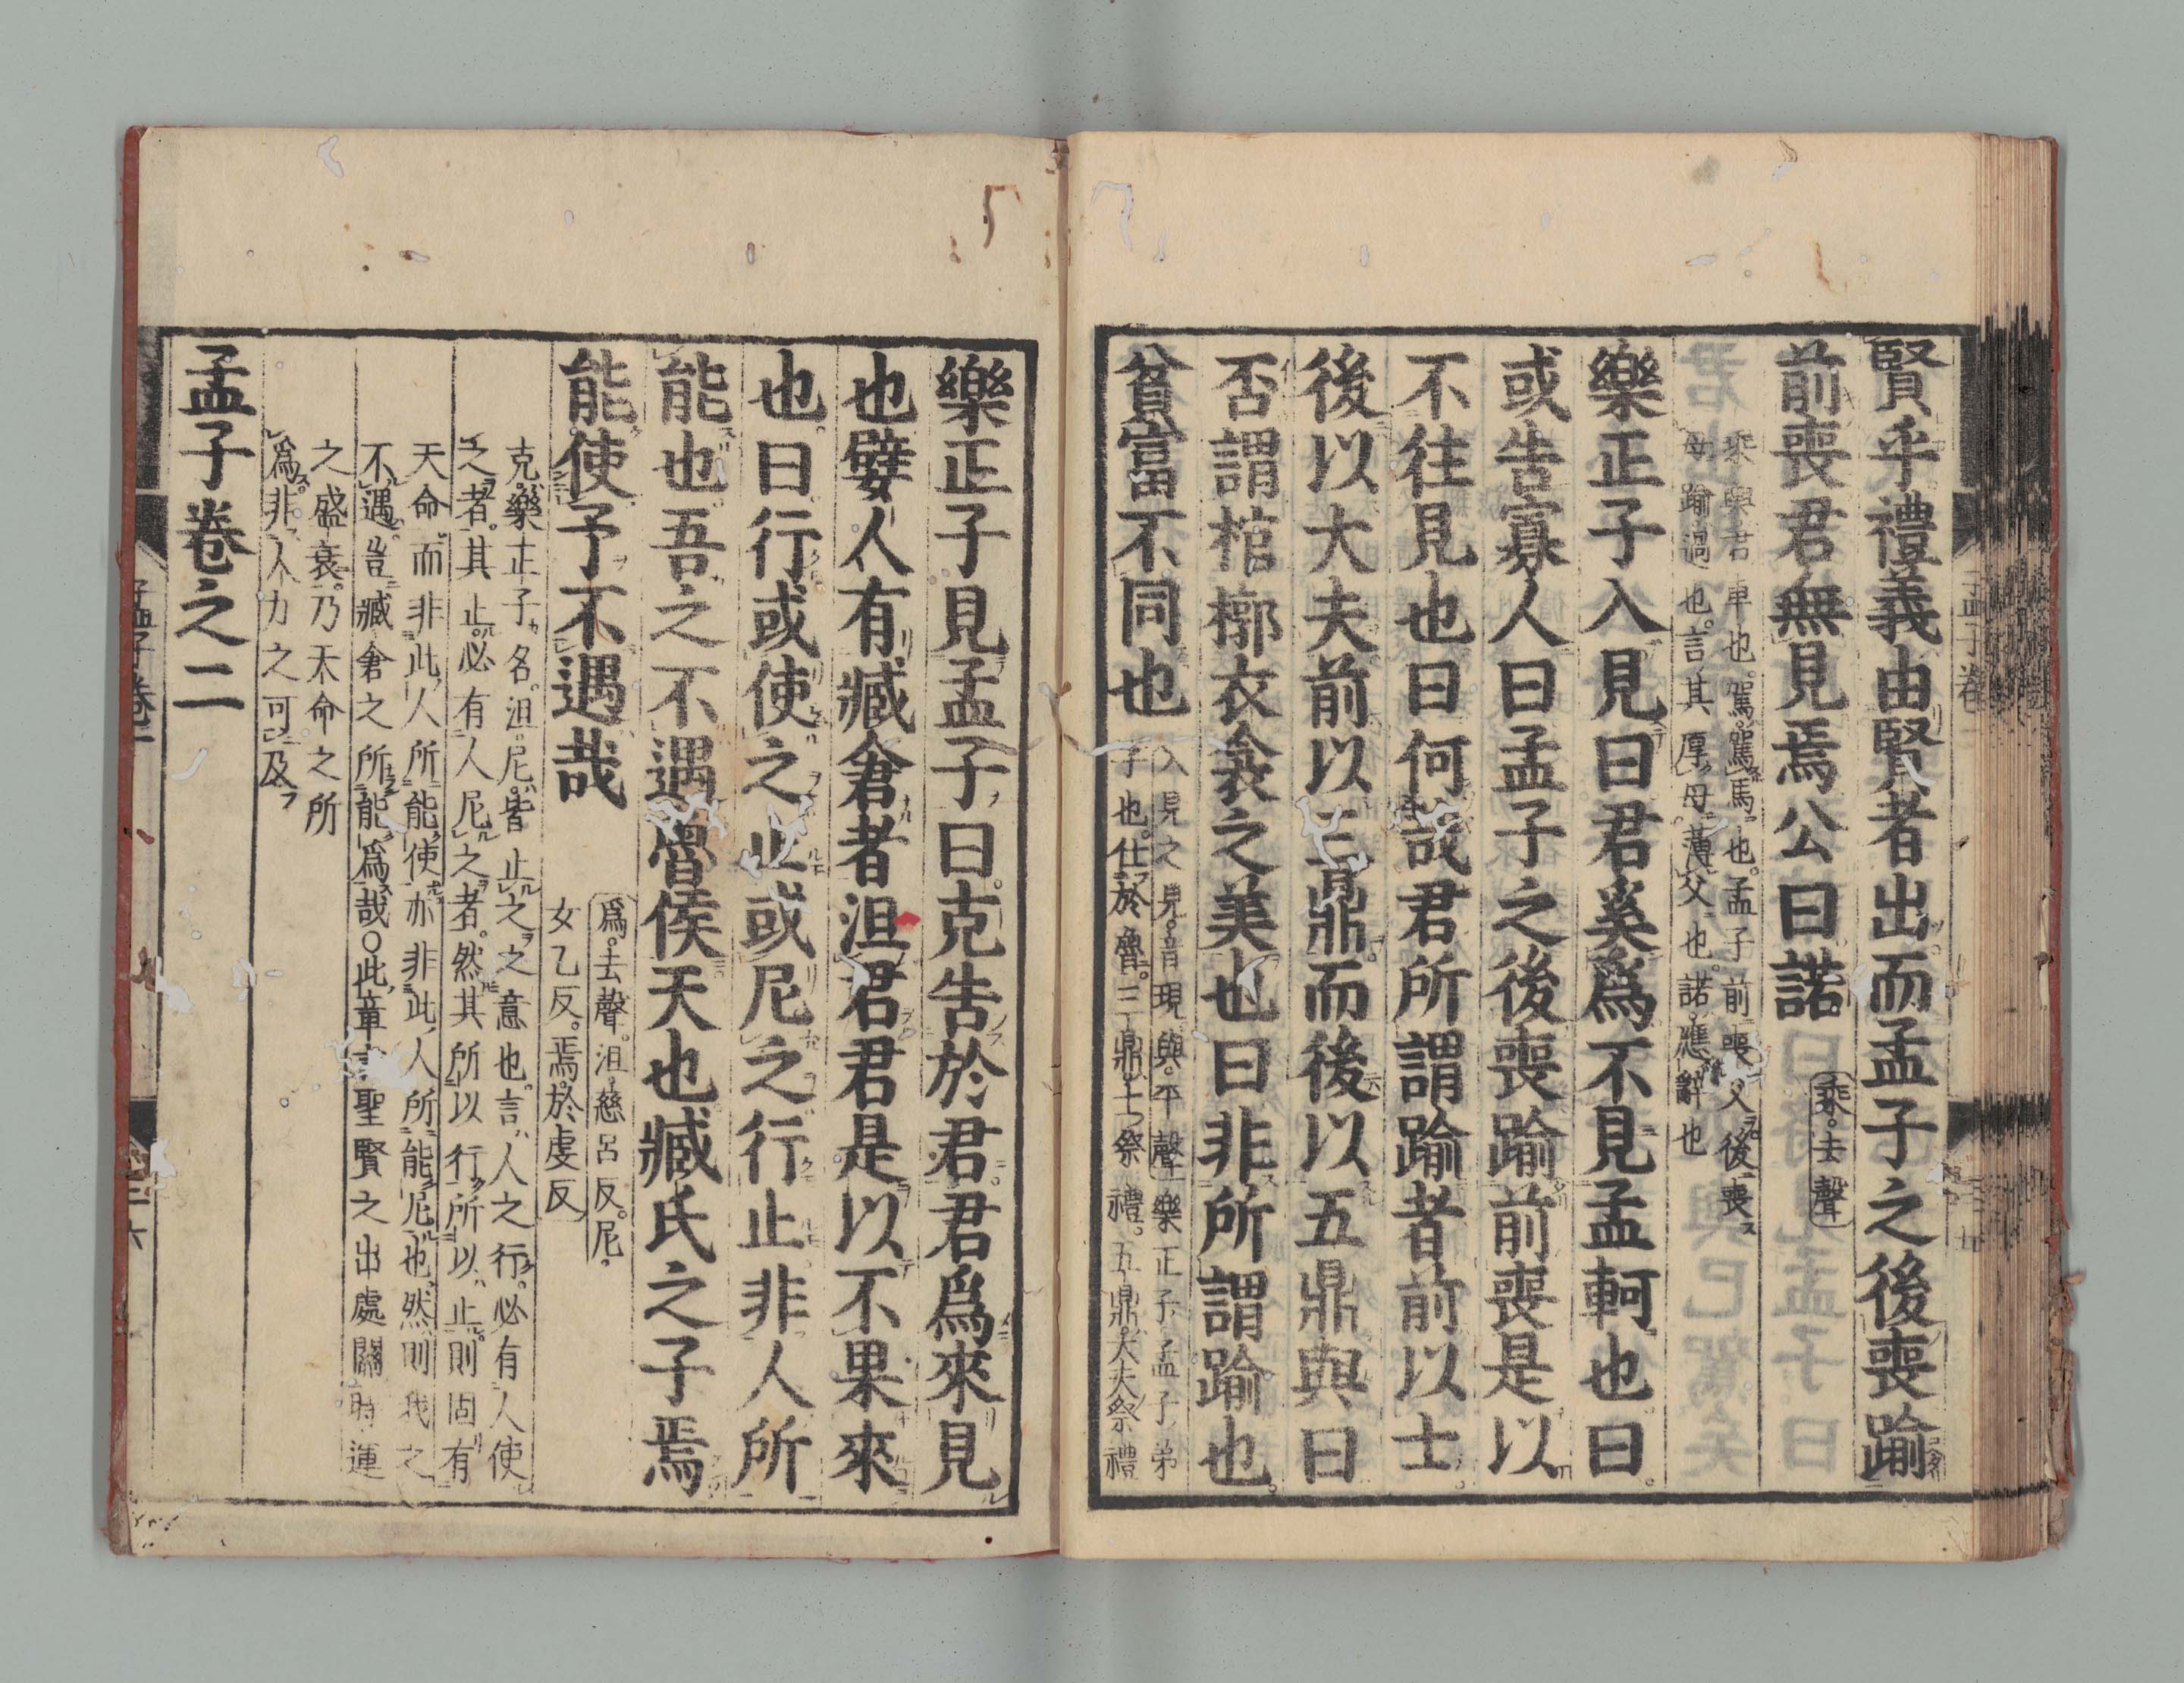 賢乎禮義由賢者出而孟子之後喪踰
前喪君無見焉公曰諾
乘去聲
乘輿君車也駕駕馬也孟子前喪父後喪
母踰過也言其厚母薄父也諾應辭也
樂正子入見曰君奚爲不見孟軻也曰
或告寡人曰孟子之後喪踰前喪是以
不往見也曰何哉君所謂踰者前以士
後以大夫前以三鼎而後以五鼎與曰
否謂棺槨衣衾之美也曰非所謂踰也
貧富不同也
入見之見音現與平聲樂正子孟子弟
子也仕於魯三鼎士祭禮五鼎大夫祭禮
樂正子見孟子曰克告於君君爲來見
也嬖人有臧倉者沮君君是以不果來
也曰行或使之止或尼之行止非人所
能也吾之不遇魯侯天也臧氏之子焉
能使予不遇哉
爲去聲沮慈呂反尼
女乙反焉於虔反
克樂正子名沮尼皆止之之意也言人之行必有人使
之者其止必有人尼之者然其所以行所以止則固有
天命而非此人所能使亦非此人所能尼也然則我之
不遇豈臧倉之所能爲哉○此章言聖賢之出處關時運
之盛衰乃天命之所
爲非人力之可及
孟子卷之二